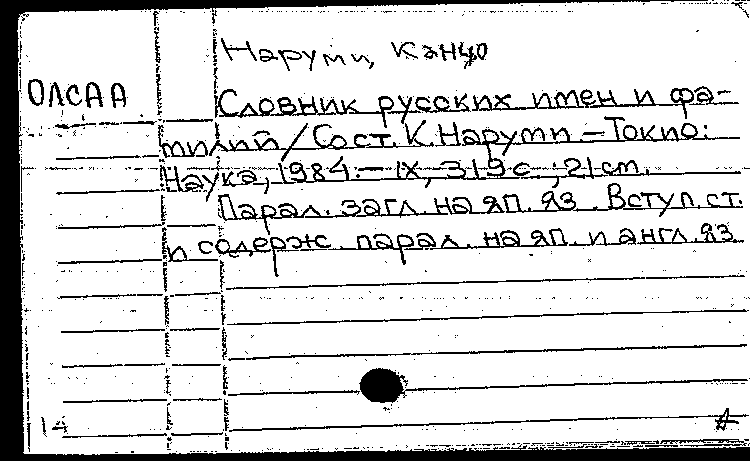 Наруми, Канцо
ОЛСАА
Словник русских имен и фа-
милий / Сост. К. Наруми. – Токио:
Наука, 1984. – IX, 319 с. ; 21 cm.
Парал. загл. на яп. яз. Вступ. ст.
и содерж. парал. на яп. и англ. яз
14